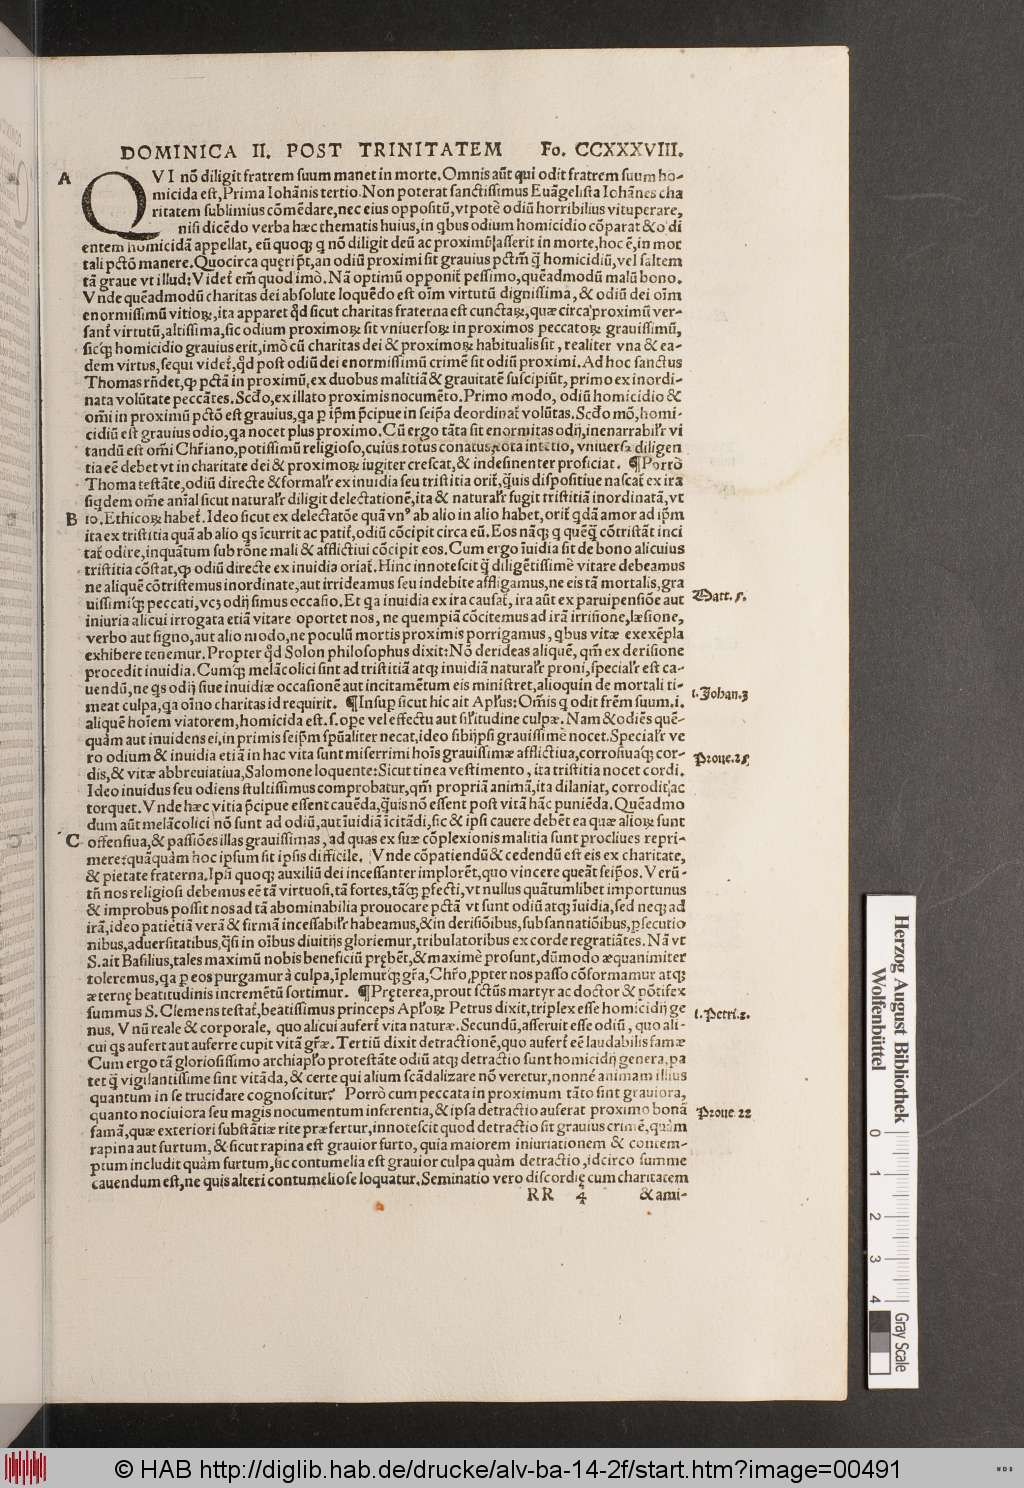 DOMINICA II. POST TRINITATEM Fo. CCXXXVIII.
A QVI nō diligit fratrem suum manet in morte. Omnis aūt qui odit fratrem suum ho-
micida est, Prima Iohānis tertio. Non poterat sanctissimus Euāgelista Iohānes cha
ritatem sublimius cōmēdare, nec eius oppositū, vtpotè odiū horribilius vituperare,
nisi dicēdo verba hæc thematis huius, in qbus odium homicidio cōparat & odi
entem homicidā appellat, eū quoqꝫ q nō diligit deū ac proximū asserit in morte, hoc ē, in mor
tali pctō manere. Quocirca quęri p̄t, an odiū proximi sit grauius pctm̄ q̄ homicidiū, vel saltem
tā graue vt illud: Videt̄ em̄ quod imò. Nā optimū opponit̄ pessimo, quēadmodū malū bono.
Vnde quēadmodū charitas dei absolute loquēdo est oīm virtutū dignissima, & odiū dei oīm
enormissimū vitioꝝ, ita apparet qd̄ sicut charitas fraterna est cunctaꝝ, quæ circa proximū ver-
sant̄ virtutū, altissima, sic odium proximoꝝ sit vniuersoꝝ in proximos peccatoꝝ grauissimū,
sicqꝫ homicidio grauius erit, imò cū charitas dei & proximoꝝ habitualis sit, realiter vna & ea-
dem virtus, sequi videt̄, qd̄ post odiū dei enormissimū crimē sit odiū proximi. Ad hoc sanctus
Thomas rn̄det, ꝙ pctā in proximū, ex duobus malitiā & grauitatē suscipiūt, primo ex inordi-
nata volūtate peccātes. Scd̄o, ex illato proximis nocumēto. Primo modo, odiū homicidio &
om̄i in proximū pctō est grauius, qa p ip̄m p̄cipue in seip̄a deordinat̄ volūtas. Scd̄o mō, homi-
cidiū est grauius odio, qa nocet plus proximo. Cū ergo tāta sit enormitas odij, inenarrabilr̄ vi
tandū est om̄i Chr̄iano, potissimū religioso, cuius totus conatus, tota intētio, vniuersa diligen
tia eē debet vt in charitate dei & proximoꝝ iugiter crescat, & indesinenter proficiat. ¶ Porrò
Thoma testāte, odiū directe & formalr̄ ex inuidia seu tristitia orit̄, q̄uis dispositiue nascat̄ ex ira
siqdem om̄e anīal sicut naturalr̄ diligit delectationē, ita & naturalr̄ fugit tristitiā inordinatā, vt
B 10. Ethicoꝝ habet̄. Ideo sicut ex delectatōe quā vn⁹ ab alio in alio habet, orit̄ qdā amor ad ip̄m
ita ex tristitia quā ab alio qs īcurrit ac patit̄, odiū cōcipit circa eū. Eos nāqꝫ q quēq̄ cōtristāt inci
tat̄ odire, inquātum sub rōne mali & afflictiui cōcipit eos. Cum ergo īuidia sit de bono alicuius
tristitia cōstat, ꝙ odiū directe ex inuidia oriat̄. Hinc innotescit q̄ diligētissimè vitare debeamus
ne aliquē cōtristemus inordinate, aut irrideamus seu indebite affligamus, ne eis tā mortalis, gra
uissimiqꝫ peccati, vcꝫ odij simus occasio. Et qa inuidia ex ira causat̄, ira aūt ex paruipensiōe aut
iniuria alicui irrogata etiā vitare oportet nos, ne quempiā cōcitemus ad irā irrisione, læsione,
verbo aut signo, aut alio modo, ne poculū mortis proximis porrigamus, qbus vitæ exexēpla
exhibere tenemur. Propter qd̄ Solon philosophus dixit: Nō derideas aliquē, qm̄ ex derisione
procedit inuidia. Cumqꝫ melācolici sint ad tristitiā atqꝫ inuidiā naturalr̄ proni, specialr̄ est ca-
uendū, ne qs odij siue inuidiæ occasionē aut incitamētum eis ministret, alioquin de mortali ti-
meat culpa, qa oīno charitas id requirit. ¶ Insup sicut hic ait Apl̄us: Om̄is q odit frēm suum. i.
aliquē hoīem viatorem, homicida est. s. ope vel effectu aut sil̄itudine culpæ. Nam & odiēs quē-
quàm aut inuidens ei, in primis seip̄m sp̄ūaliter necat, ideo sibijpsi grauissimè nocet. Specialr̄ ve
ro odium & inuidia etiā in hac vita sunt miserrimi hoīs grauissimæ afflictiua, corrosiuaqꝫ cor-
dis, & vitæ abbreuiatiua, Salomone loquente: Sicut tinea vestimento, ita tristitia nocet cordi.
Ideo inuidus seu odiens stultissimus comprobatur, qm̄ propriā animā, ita dilaniat, corrodit, ac
torquet. Vnde hæc vitia p̄cipue essent cauēda, q̄uis nō essent post vitā hāc puniēda. Quēadmo
dum aūt melācolici nō sunt ad odiū, aut īuidiā īcitādi, sic & ipsi cauere debēt ea quæ alioꝝ sunt
C offensiua, & passiōes illas grauissimas, ad quas ex suæ cōplexionis malitia sunt procliues repri-
mere: quāquàm hoc ipsum sit ipsis difficile. Vnde cōpatiendū & cedendū est eis ex charitate,
& pietate fraterna. Ipsi quoqꝫ auxiliū dei incessanter implorēt, quo vincere queāt seip̄os. Verū-
tn̄ nos religiosi debemus eē tā virtuosi, tā fortes, tāqꝫ pfecti, vt nullus quātumlibet importunus
& improbus possit nos ad tā abominabilia prouocare pctā vt sunt odiū atqꝫ īuidia, sed neqꝫ ad
irā, ideo patiētiā verā & firmā incessabilr̄ habeamus, & in derisiōibus, subsannatiōibus, psecutio
nibus, aduersitatibus, q̄si in oībus diuitijs gloriemur, tribulatoribus ex corde regratiātes. Nā vt
S. ait Basilius, tales maximū nobis beneficiū prębēt, & maximè prosunt, dūmodo æquanimiter
toleremus, qa p eos purgamur à culpa, īplemurqꝫ gr̄a, Chr̄o, ppter nos passo cōformamur atqꝫ
æternę beatitudinis incremētū sortimur. ¶ Pręterea, prout sctūs martyr ac doctor & pōtifex
summus S. Clemens testat̄, beatissimus princeps Apl̄oꝝ Petrus dixit, triplex esse homicidij ge
nus. Vnū reale & corporale, quo alicui aufert̄ vita naturæ. Secundū, asseruit esse odiū, quo ali-
cui qs aufert aut auferre cupit vitā gr̄æ. Tertiū dixit detractionē, quo aufert̄ eē laudabilis famæ
Cum ergo tā gloriosissimo archiapl̄o protestāte odiū atqꝫ detractio sunt homicidij genera, pa
tet q̄ vigilantissime sint vitāda, & certe qui alium scādalizare nō veretur, nonné animam illius
quantum in se trucidare cognoscitur? Porrò cum peccata in proximum tāto sint grauiora,
quanto nociuiora seu magis nocumentum inferentia, & ipsa detractio auferat proximo bonā
famā, quæ exteriori substātiæ rite præfertur, innotescit quod detractio sit grauius crimē, quàm
rapina aut furtum, & sicut rapina est grauior furto, quia maiorem iniuriationem & contem-
ptum includit quàm furtum, sic contumelia est grauior culpa quàm detractio, idcirco summe
cauendum est, ne quis alteri contumeliose loquatur. Seminatio vero discordię cum charitatem
RR 4 & ami-
Matt. 5.
1. Johan. 3
Proue. 25
1. Petri. 2.
Proue 22
Herzog August Bibliothek
Wolfenbüttel
0 1 2 3 4
Gray Scale
© HAB http://diglib.hab.de/drucke/alv-ba-14-2f/start.htm?image=00491